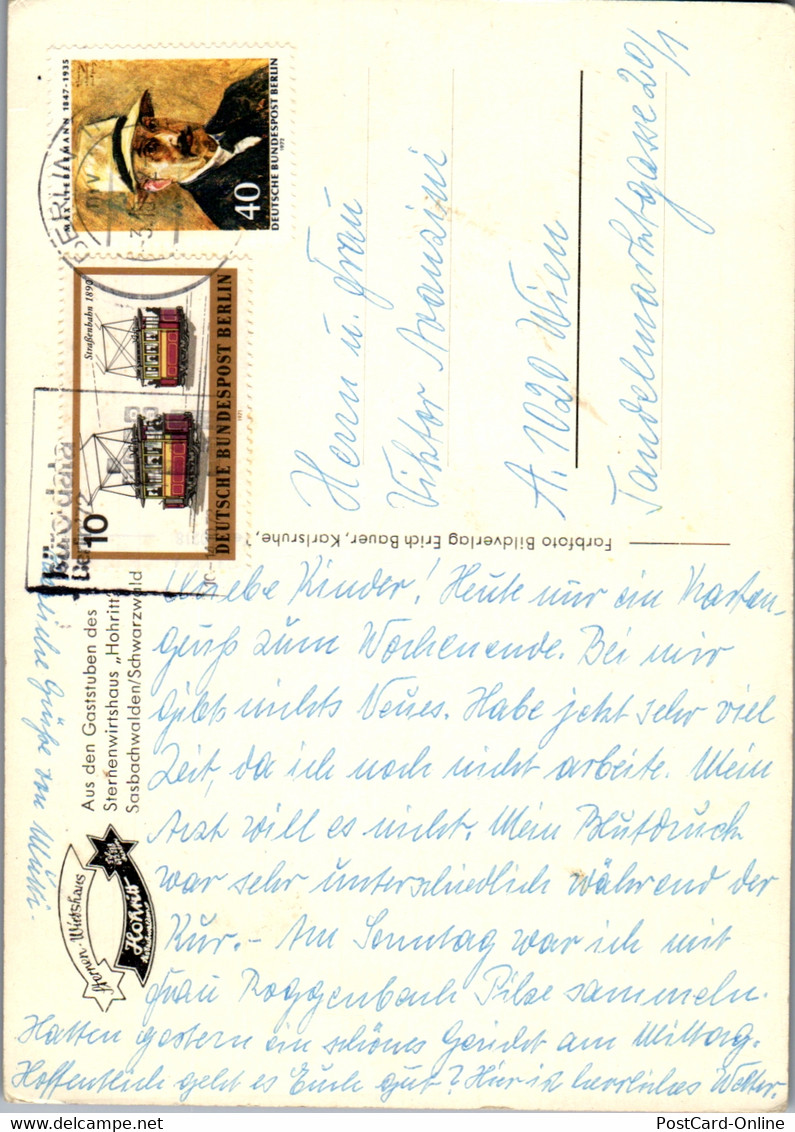 MAX LIEBERMANN 1847-1935
40
DEUTSCHE BUNDESPOST BERLIN
1972
BERLIN
Straßenbahn 1890
10
DEUTSCHE BUNDESPOST BERLIN
1971
büro-data
Berlin 72
Herrn u. Frau
Viktor Avanzini
A. 1020 Wien
Tandelmarktgasse 20/1
Farbfoto Bildverlag Erich Bauer, Karlsruhe,
Aus den Gaststuben des
Sternenwirtshaus „Hohritt“
Sasbachwalden/Schwarzwald
Sternen-Wirtshaus
Hohritt
Liebe Kinder! Heute nur ein Karten-
gruß zum Wochenende. Bei mir
gibts nichts Neues. Habe jetzt sehr viel
Zeit, da ich noch nicht arbeite. Mein
Arzt will es nicht. Mein Blutdruck
war sehr unterschiedlich während der
Kur.- Am Sonntag war ich mit
Frau Roggenbach Pilze sammeln.
Hatten gestern ein schönes Gericht am Mittag.
Hoffentlich geht es Euch gut? Hier ist herrliches Wetter.
Grüße von Mutti.